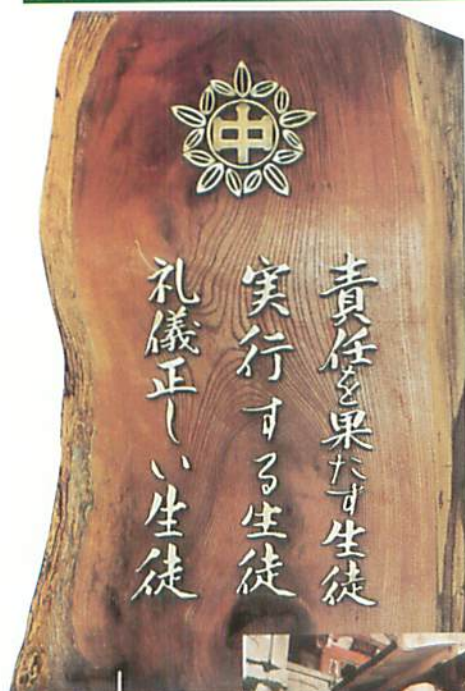 中
責任を果たす生徒
実行する生徒
礼儀正しい生徒